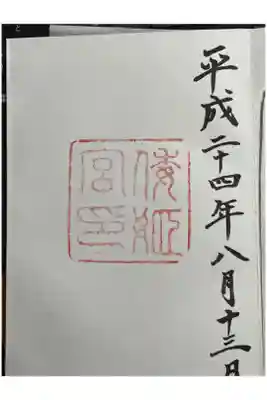 平成二十四年八月十三日
倭姫
宮印